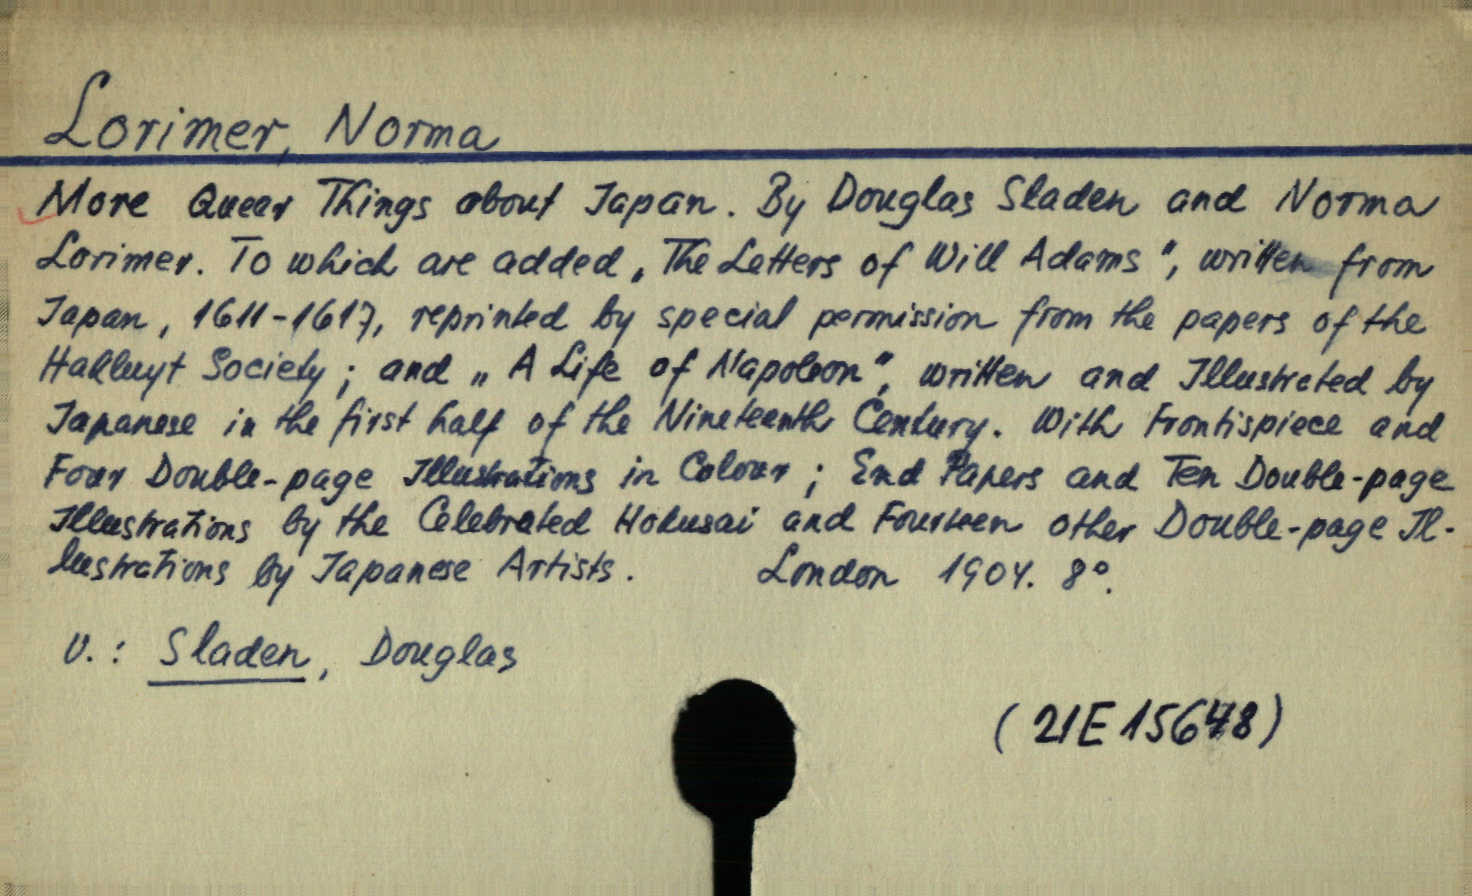 Lorimer, Norma
More Queer Things about Japan. By Douglas Sladen and Norma
Lorimer. To which are added „The Letters of Will Adams", written from
Japan, 1611-1617, reprinted by special permission from the papers of the
Hakluyt Society; and „A Life of Napoleon", written and Illustrated by
Japanese in the first half of the Nineteenth Century. With Frontispiece and
Four Double-page Illustrations in Colour; End Papers and Ten Double-page
Illustrations by the Celebrated Hokusai and Fourteen other Double-page Il-
lustrations by Japanese Artists. London 1904. 8°.
v.: Sladen, Douglas
(21E15648)